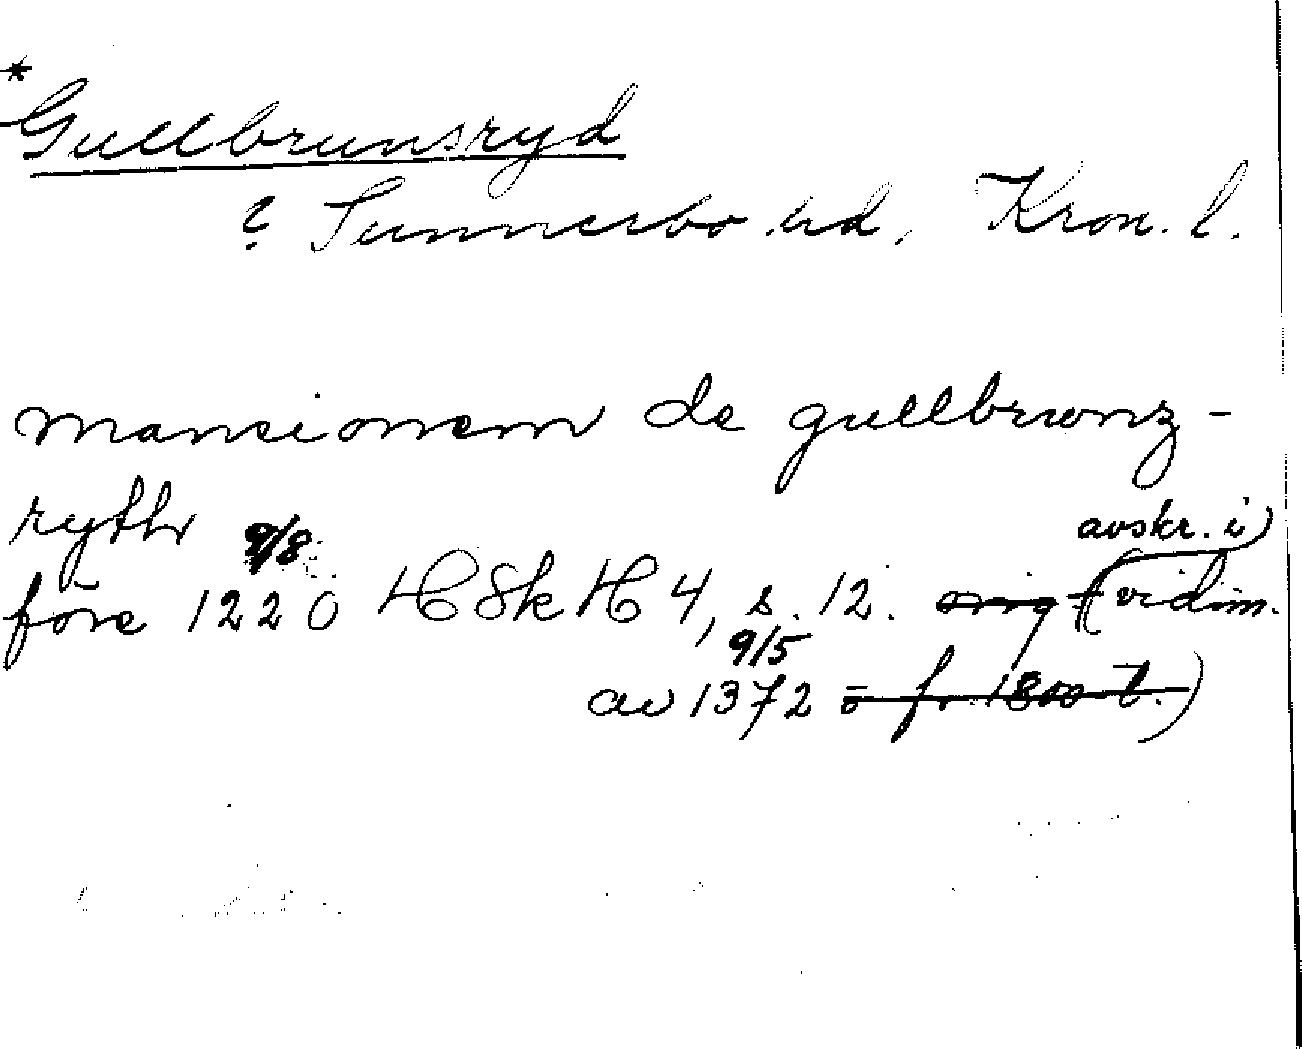 * Gullbrunsryd
? Sunnerbo hd, Kron. l.
mansionem de gullbrwnz-
rythr
före 9/8 1220 HSkH 4, s. 12. orig (avskr. i vidim.
av 9/5 1372 o fr 1800-t.)